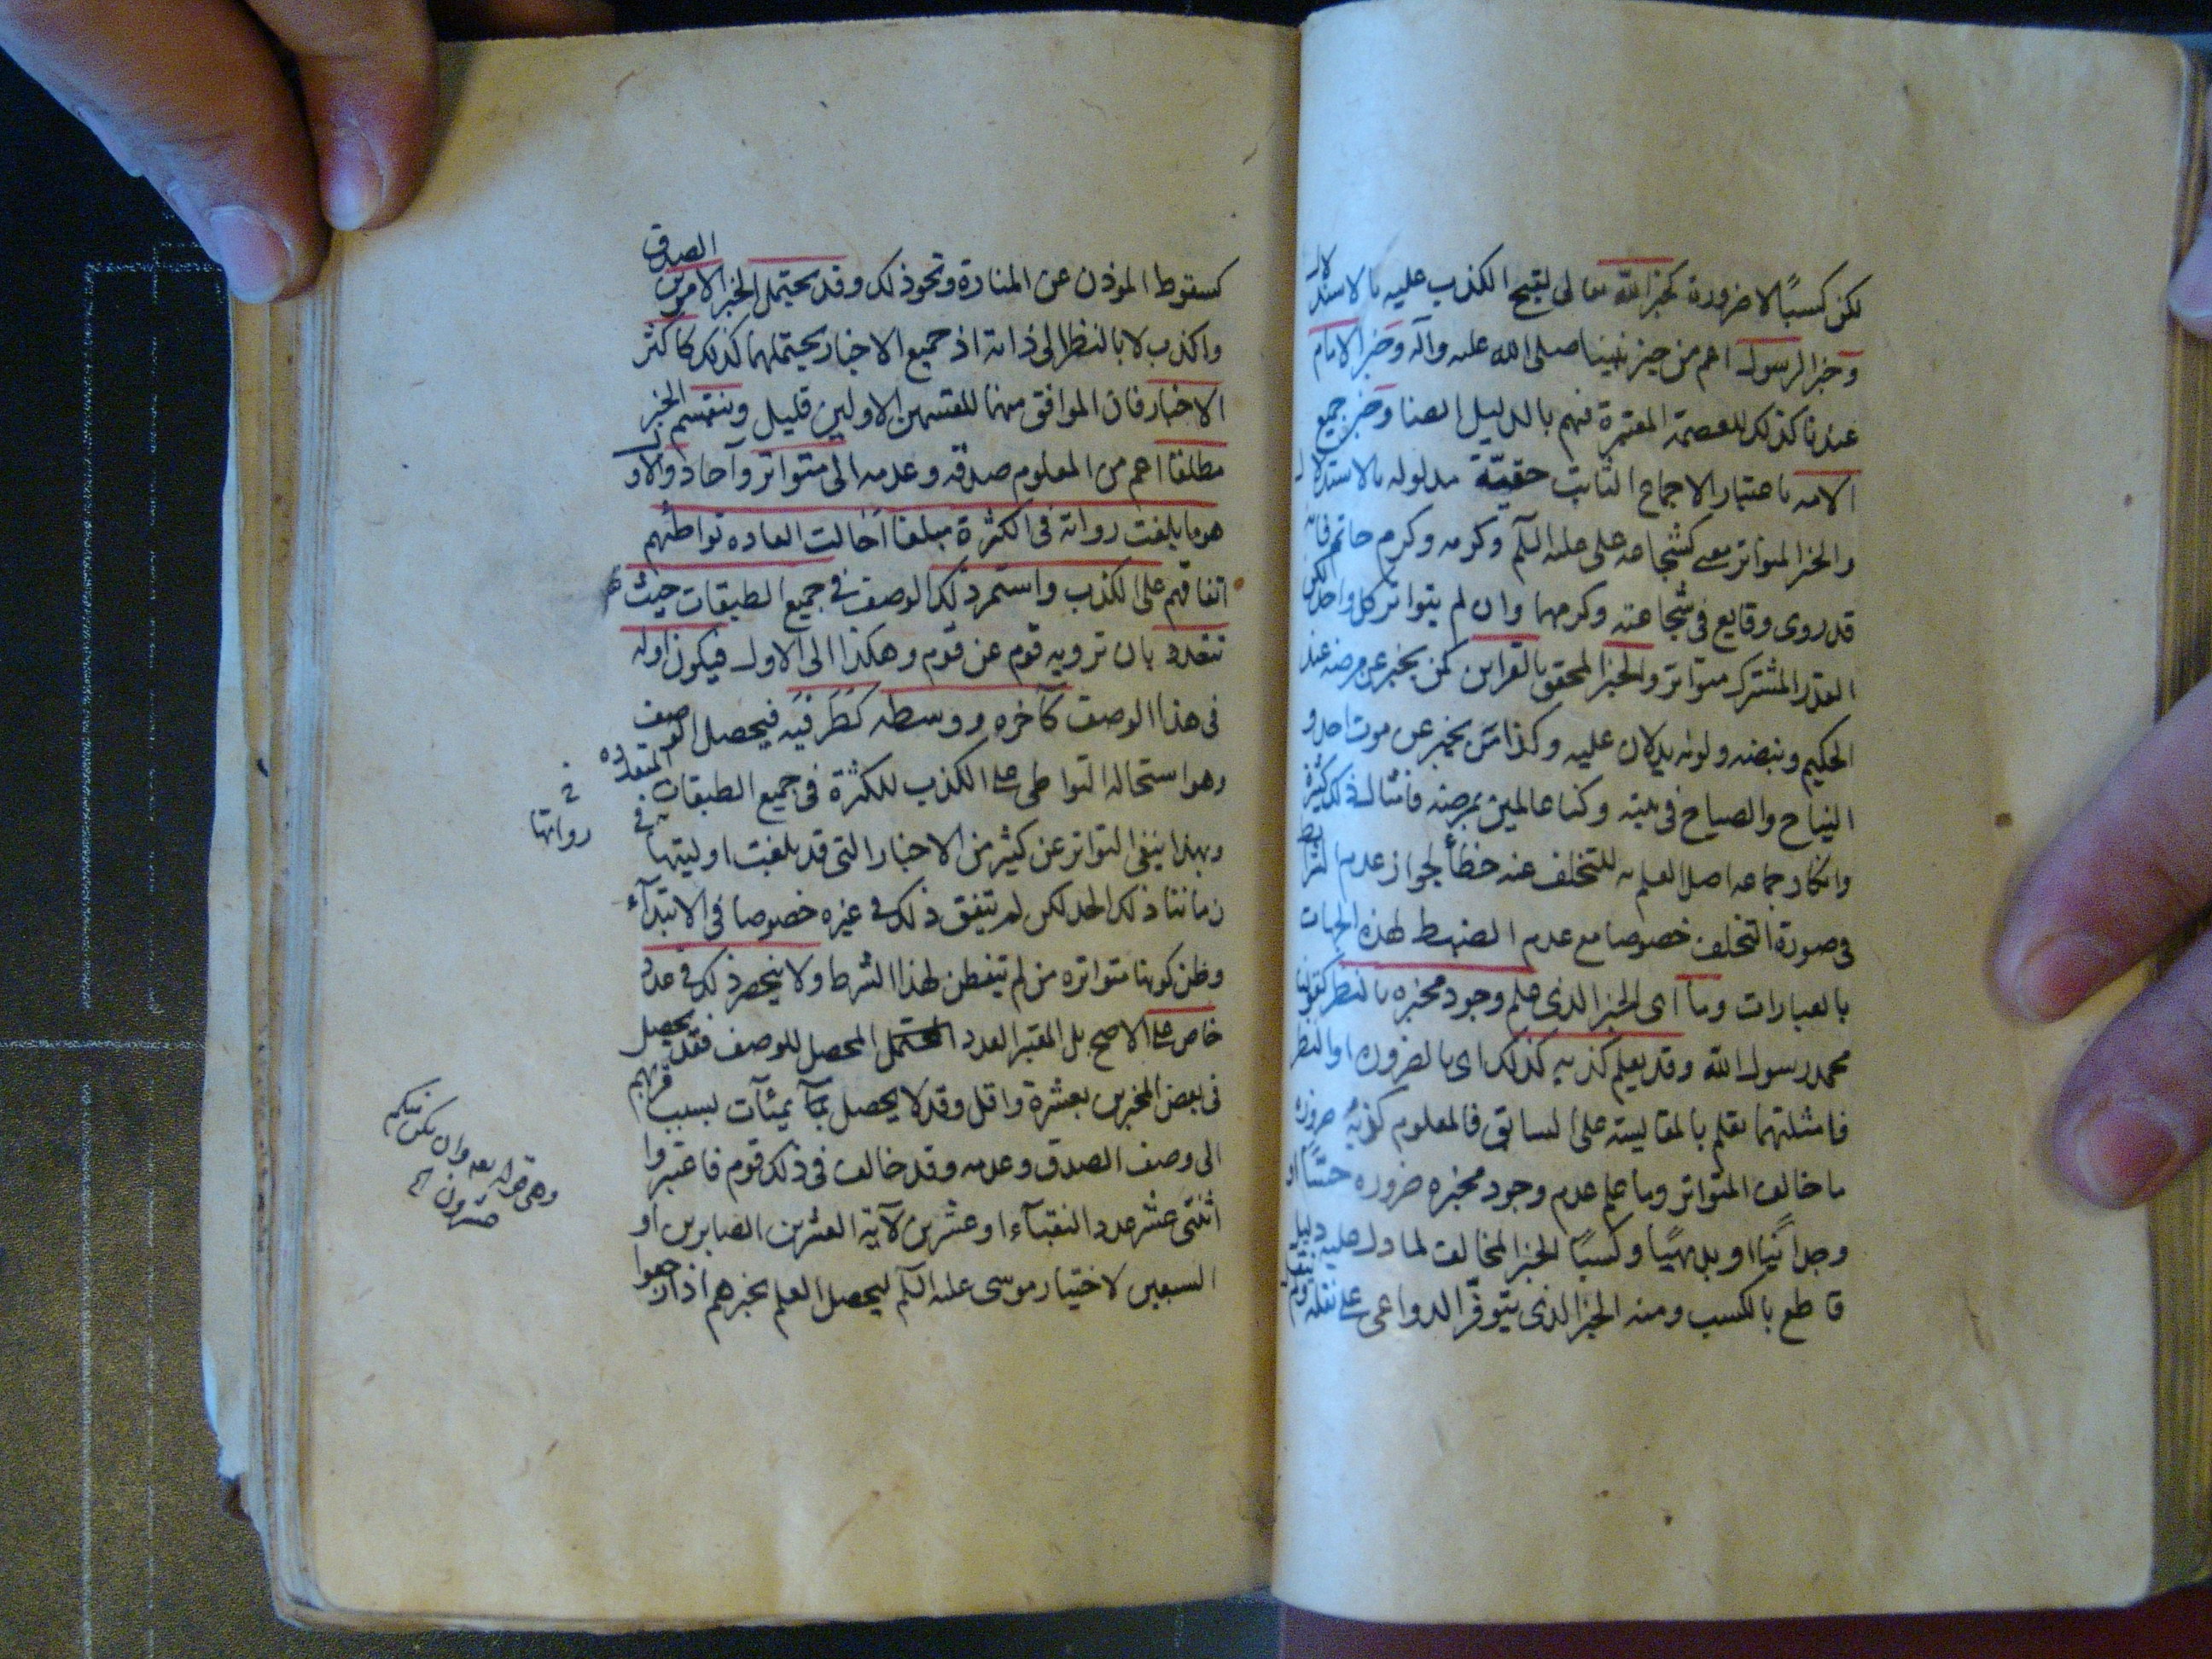 لكن كسبًا لا ضرورة كخبر الله تعالى لقبح الكذب عليه بالاستدلال
وخبر الرسول اعم من خبر نبينا صلى الله عليه وآله وخبر الامام
عندنا كذلك للعصمة المعتبرة فيهم بالدليل ايضا وخبر جميع
الامه باعتبار الاجماع الثابت حقيّة مدلوله بالاستدلال
والخبر المتواتر معنى كشجاعه على عليه السلم وكرمه وكرم حاتم فانه
قد روى وقايع فى شجاعته وكرمهما وان لم يتواتر كل واحد لكن
القدر المشترك متواتر والخبر المحقق بالقراين كمن يخبر عن مرضه عند
الحكيم ونبضه ولونه يدلان عليه وكذا من يخبر عن موت احد و
النياح والصياح فى بيته وكنا عالمين بمرضه فامثال ذلك كثيرة
وانكار جماعه اصل العلم به للتخلف عنه خطأ لجواز عدم الشرايط
فى صورة التخلف خصوصا مع عدم الضبط لهذه الجهات
بالعبارات وما اى الخبر الذى علم وجود مخبره بالنظر كقولنا
محمد رسول الله وقد يعلم كذبه كذلك اى بالضروره او النظر
فامثلتهما تعلم بالمقايسة على السابق فالمعلوم كذبه ضروره
ما خالف المتواتر وما علم عدم وجود مخبره ضروره حسًا او
وجدانيًا او بديهيًا وكسبًا الخبر المخالف لما دل عليه دليل
قاطع بالكسب ومنه الخبر الذى يتوفر الدواعى على نقله ولم ينقل
كسقوط الموذن عن المنارة ونحو ذلك وقد يحتمل الخبر الامرين الصدق
والكذب لا بالنظر الى ذاته اذ جميع الاخبار يحتملهما كذلك كاكثر
الاخبار فان الموافق منها للقسمين الاولين قليل وينقسم الخبر
مطلقا اعم من المعلوم صدقه وعدمه الى متواتر وآحاد والاول
هو ما بلغت رواته فى الكثرة مبلغا احالت العاده تواطئهم
اتفاقهم على الكذب واستمر ذلك الوصف فى جميع الطبقات حيث
تتعدد بان ترويه قوم عن قوم وهكذا الى الاول فيكون اوله
فى هذا الوصف كآخره ووسطه كطَرَفَيه فيحصل الوصف
وهو استحاله التواطى على الكذب للكثرة فى جميع الطبقات المتعدده
وبهذا ينفى التواتر عن كثير من الاخبار التى قد بلغت اوليتها فى
رواتها
زماننا ذلك الحد لكن لم تتفق ذلك فى غيره خصوصا فى الابتدآء
وظن كونها متواتره من لم يتفطن لهذا الشرط ولا ينحصر ذلك فى عدد
خاص على الاصح بل المعتبر العدد المحصل للوصف فقد يحصل
فى بعض المخبرين بعشرة واقل وقد لا يحصل بمآت بسبب قربهم
الى وصف الصدق وعدمه وقد خالف فى ذلك قوم فاعتبروا
وهى قوله تعه وان يكن منكم
عشرون
اثنى عشر عدد النقبآء او عشرين لآية العشرين الصابرين او
السبعين لاختيار موسى عليه السلم ليحصل العلم بخبرهم اذا رجعوا